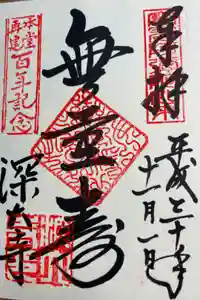 奉拝
平成三十年
十一月一日
無量壽
本堂再建
百年記念
深大寺